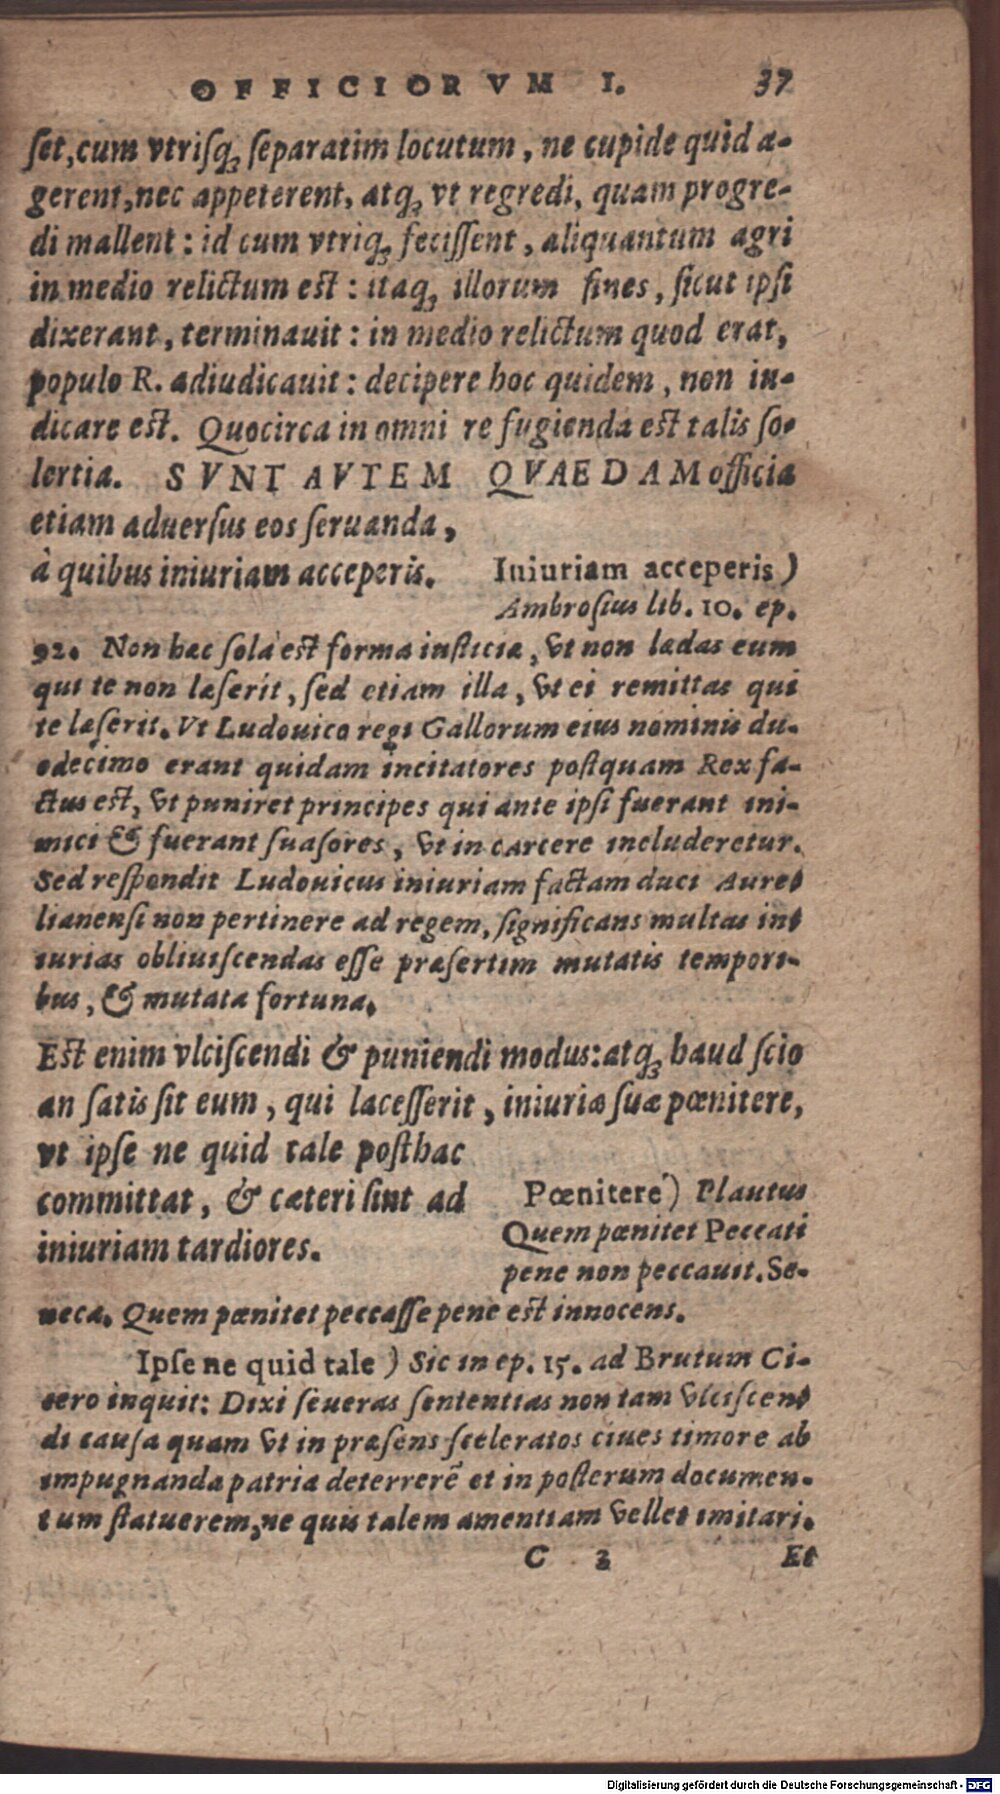 OFFICIORVM I. 37
ſet, cum vtriſq; ſeparatim locutum, ne cupide quid a-
gerent, nec appeterent, atq; vt regredi, quam progre-
di mallent: id cum vtriq; feciſſent, aliquantum agri
in medio relictum est: itaq; illorum fines, ſicut ipſi
dixerant, terminauit: in medio relictum quod erat,
populo R. adiudicauit: decipere hoc quidem, non iu-
dicare est. Quocirca in omni re fugienda est talis ſo-
lertia. SVNT AVTEM QVAEDAM officia
etiam aduerſus eos ſeruanda,
à quibus iniuriam acceperis.
Iniuriam acceperis)
Ambroſius lib. 10. ep.
92. Non hæc ſola est forma iusticiæ, vt non lædas eum
qui te non læſerit, ſed etiam illa, vt ei remittas qui
te læſerit. Vt Ludouico regi Gallorum eius nominis du-
odecimo erant quidam incitatores postquam Rex fa-
ctus est, vt puniret principes qui ante ipſi fuerant ini-
mici & fuerant ſuaſores, vt in carcere includeretur.
Sed reſpondit Ludouicus iniuriam factam duci Aure-
lianenſi non pertinere ad regem, ſignificans multas in-
iurias obliuiſcendas eſſe præſertim mutatis tempori-
bus, & mutata fortuna.
Est enim vlciſcendi & puniendi modus: atq; haud ſcio
an ſatis ſit eum, qui laceſſerit, iniuriæ ſuæ pœnitere,
vt ipſe ne quid tale posthac
committat, & cæteri ſint ad
iniuriam tardiores.
Pœnitere) Plautus
Quem pœnitet Peccati
pene non peccauit. Se-
neca. Quem pœnitet peccaſſe pene est innocens.
Ipſe ne quid tale) Sic in ep. 15. ad Brutum Ci-
cero inquit: Dixi ſeueras ſententias non tam vlciſcen-
di cauſa quam vt in præſens ſceleratos ciues timore ab
impugnanda patria deterrerē et in posterum documen-
tum statuerem, ne quis talem amentiam vellet imitari.
C 3 Et
Digitalisierung gefördert durch die Deutsche Forschungsgemeinschaft - DFG